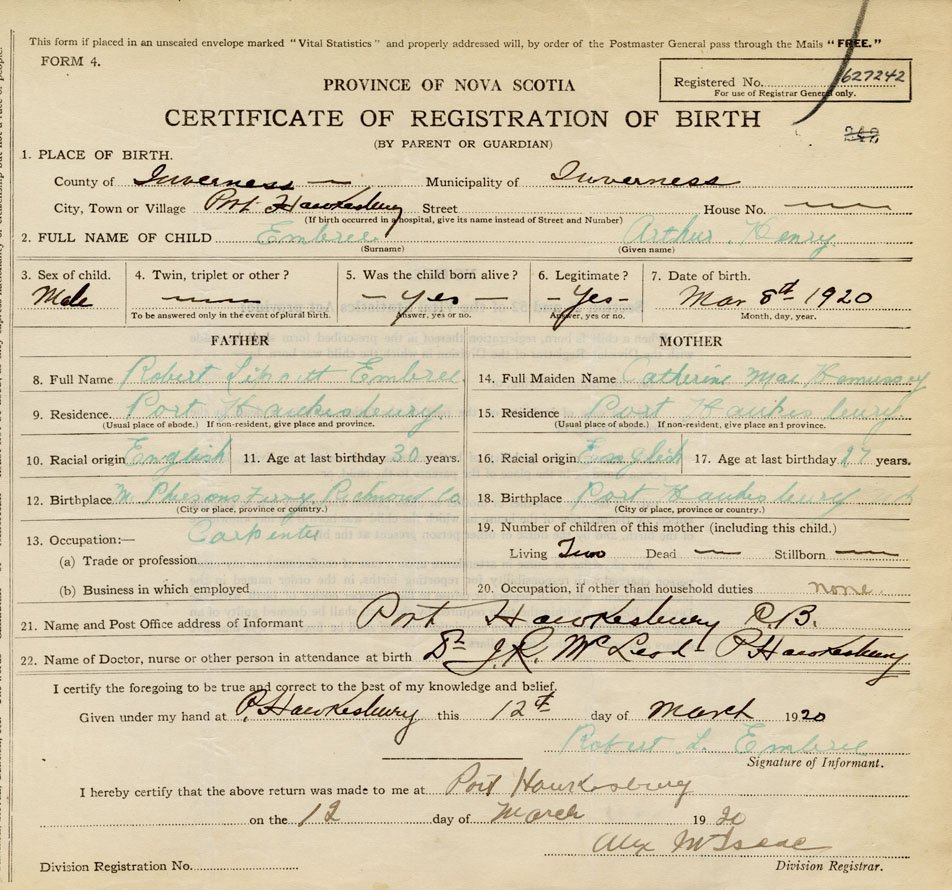 This form if placed in an unsealed envelope marked "Vital Statistics" and properly addressed will, by order of the Postmaster General pass through the Mails "FREE."
FORM 4.
Registered No. 627242
For use of Registrar General only.
PROVINCE OF NOVA SCOTIA
CERTIFICATE OF REGISTRATION OF BIRTH
(BY PARENT OR GUARDIAN)
1. PLACE OF BIRTH.
County of Inverness Municipality of Inverness
City, Town or Village Port Hawkesbury Street House No.
(If birth occurred in a hospital, give its name instead of Street and Number)
2. FULL NAME OF CHILD Embree Arthur Henry
(Surname) (Given name)
3. Sex of child. 4. Twin, triplet or other? 5. Was the child born alive? 6. Legitimate? 7. Date of birth.
Male — - Yes - - Yes - Mar 8th 1920
To be answered only in the event of plural birth. Answer, yes or no. Answer, yes or no. Month, day, year.
FATHER MOTHER
8. Full Name Robert Embree 14. Full Maiden Name Catherine Mac
9. Residence. Port Haukesbury 15. Residence Port Haukesbury
(Usual place of abode.) If non-resident, give place and province. (Usual place of abode.) If non-resident, give place and province.
10. Racial origin English 11. Age at last birthday 30 years. 16. Racial origin English 17. Age at last birthday 27 years.
12. Birthplace Mc Phersons Ferry Richmond Co 18. Birthplace Port Haukesbury
(City or place, province or country.) (City or place, province or country.)
13. Occupation:— Carpenter 19. Number of children of this mother (including this child.)
(a) Trade or profession Living Two Dead — Stillborn —
(b) Business in which employed 20. Occupation, if other than household duties none
21. Name and Post Office address of Informant Port Hawkesbury C.B.
22. Name of Doctor, nurse or other person in attendance at birth Dr J.R. McLeod P Hawkesbury
I certify the foregoing to be true and correct to the best of my knowledge and belief.
Given under my hand at P. Hawkesbury this 12th day of March 1920
Robert L. Embree
Signature of Informant.
I hereby certify that the above return was made to me at Port Hawkesbury
on the 12 day of March 1920
Alex McIsaac
Division Registration No. Division Registrar.